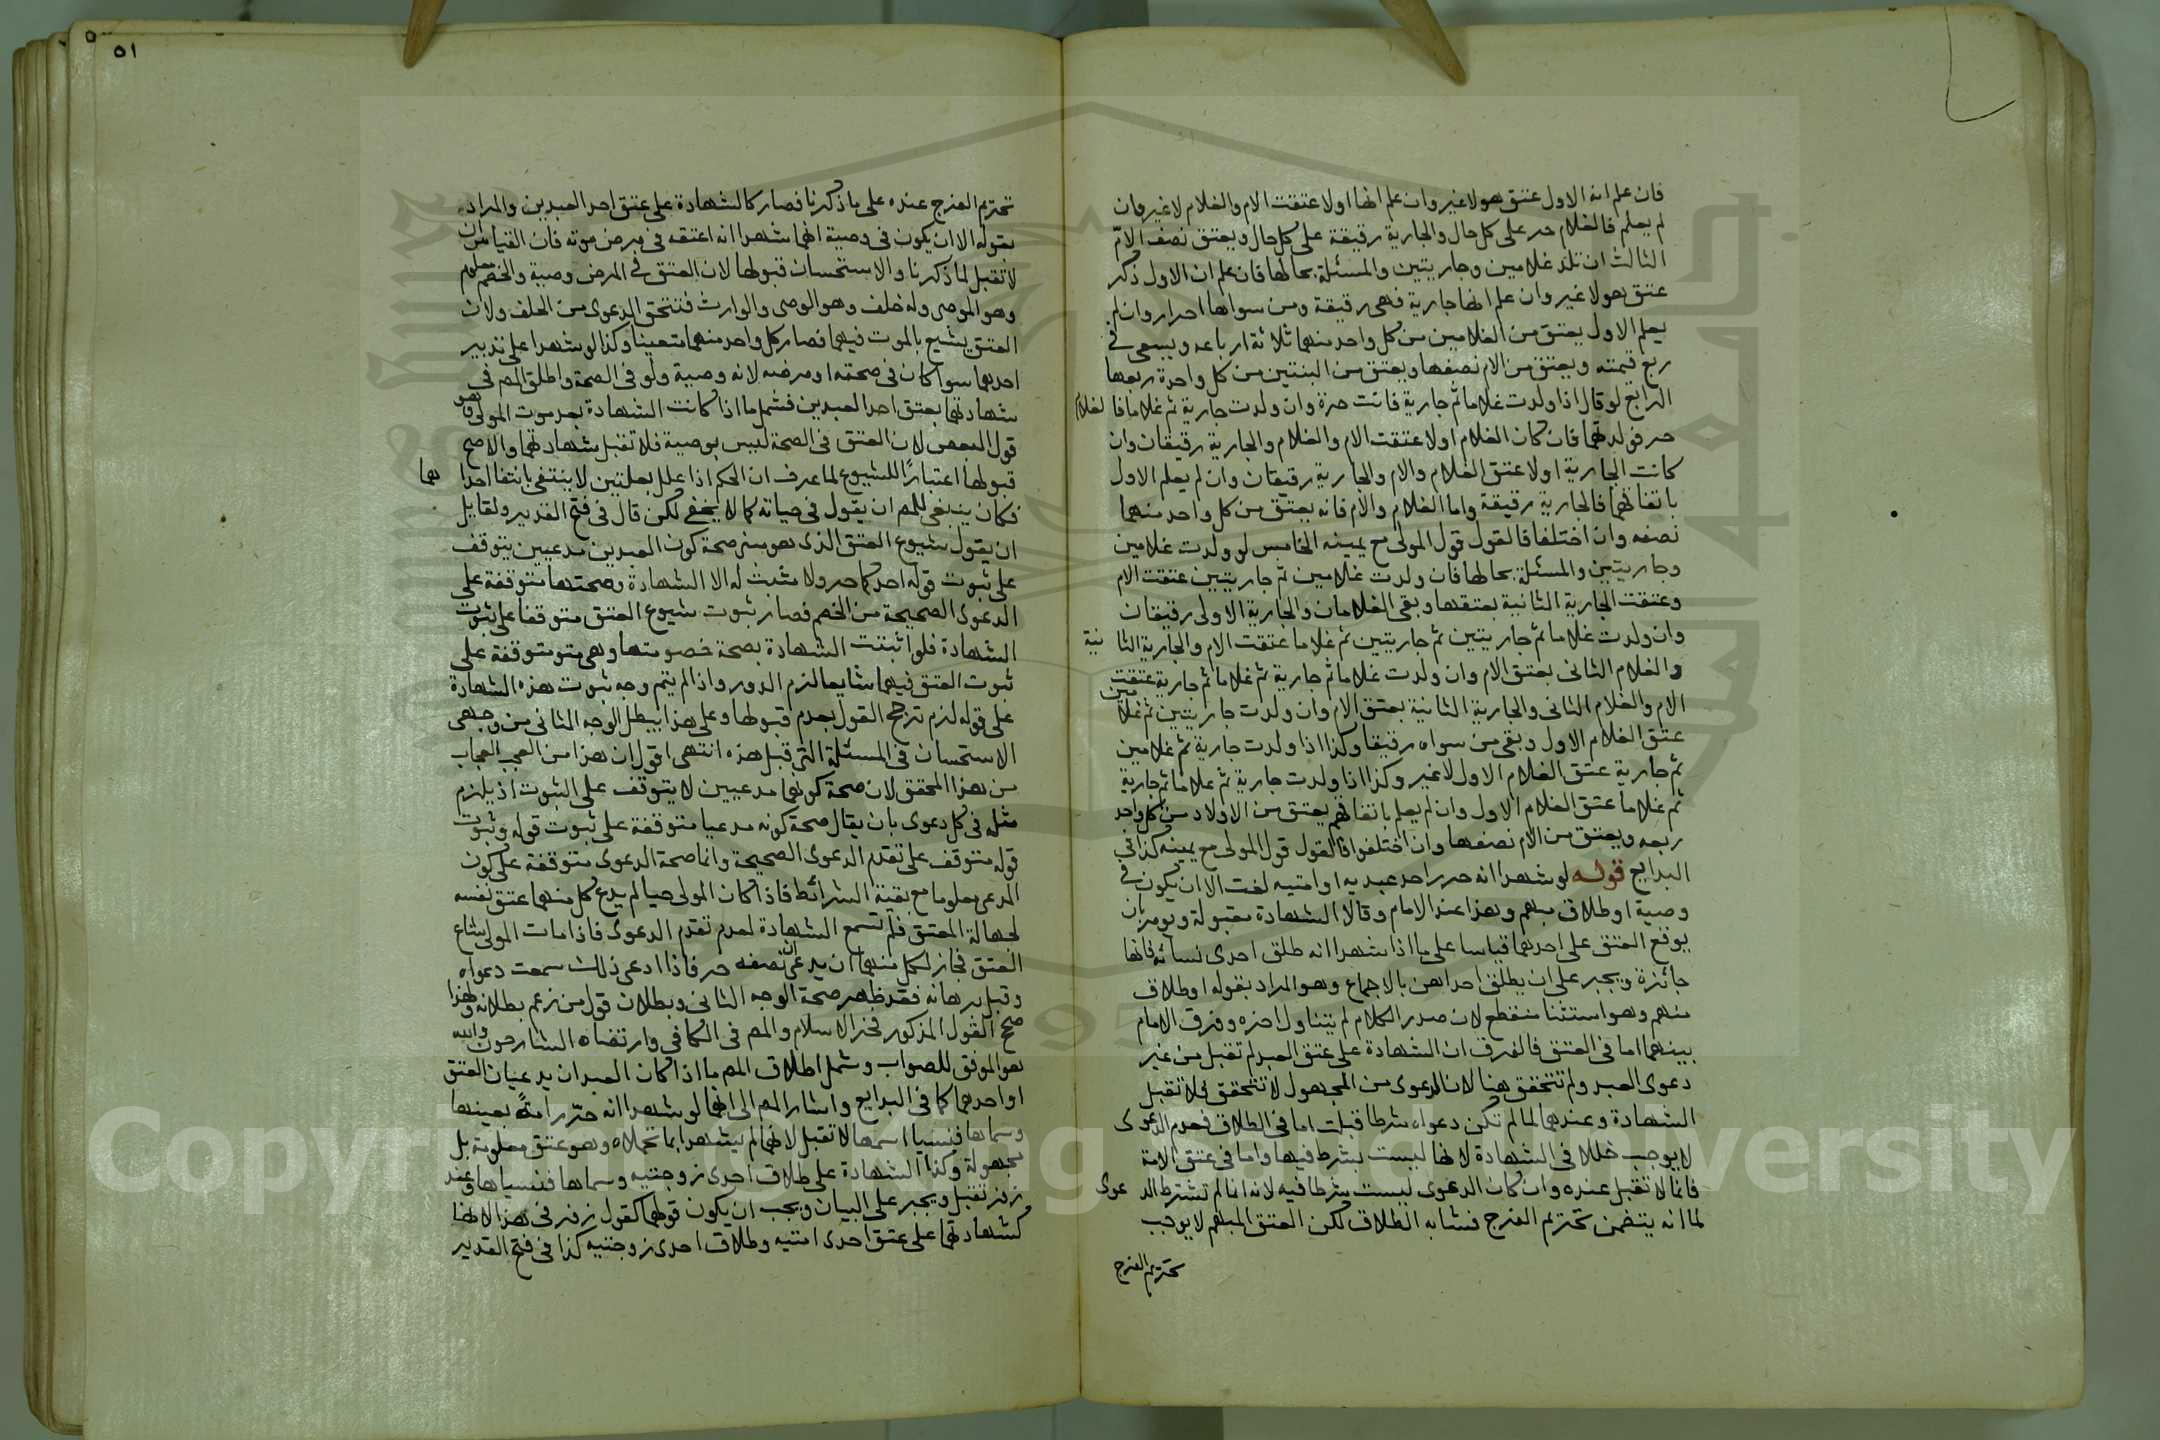 فان علم انه الاول عتق هو لا غير وان علم انها اولا عتقت الام والغلام لا غير وان
لم يعلم فالغلام حر على كل حال والجارية رقيقة على كل حال ويعتق نصف الام
الثالث ان تلد غلامين وجاريتين والمسئلة بحالها فان علم ان الاول ذكر
عتق هو لا غير وان علم انها جارية فهى رقيقة ومن سواها احرار وان لم
يعلم الاول يعتق من الغلامين من كل واحد منهما ثلاثة ارباعه ويسعى فى
ربع قيمته ويعتق من الام نصفها ويعتق من البنتين من كل واحدة ربعها
الرابع لو قال اذا ولدت غلاما ثم جارية فانت حرة وان ولدت جارية ثم غلاما فا لغلام
حر فولدتهما فان كان الغلام اولا عتقت الام والغلام والجارية رقيقان وان
كانت الجارية اولا عتق الغلام والام والجارية رقيقان وان لم يعلم الاول
باتفاقهما فالجارية رقيقة واما الغلام والام فانه يعتق من كل واحد منهما
نصفه وان اختلفا فالقول قول المولى مع يمينه الخامس لو ولدت غلامين
وجاريتين والمسئلة بحالها فان ولدت غلامين ثم جاريتين عتقت الام
وعتقت الجارية الثانية بعتقها وبقى الغلامان والجارية الاولى رقيقان
وان ولدت غلاما ثم جاريتين ثم جاريتين ثم غلاما عتقت الام والجارية الثا نية
والغلام الثانى بعتق الام وان ولدت غلاما ثم جارية ثم غلاما ثم جارية عتقت
الام والغلام الثانى والجارية الثانية بعتق الام وان ولدت جاريتين ثم غلا مين
عتق الغلام الاول وبقى من سواه رقيقا وكذا اذا ولدت جارية ثم غلامين
ثم جارية عتق الغلام الاول لا غير وكذا اذا ولدت جارية ثم غلاما ثم جارية
ثم غلاما عتق الغلام الاول وان لم يعلم باتفاقهم يعتق من الاولاد من كل واحد
ربعه ويعتق من الام نصفها وان اختلفوا فالقول قول المولى مع يمينه كذا فى
البدايع قوله لو شهدا انه حرر احد عبديه او امتيه لغت الا ان يكون فى
وصية او طلاق مبهم وهذا عند الامام وقالا الشهادة مقبولة ويومر بان
يوقع العتق على احدهما قياسا على ما اذا شهدا انه طلق احدى نسائه فانها
جائزة ويجبر على ان يطلق احداهن بالاجماع وهو المراد بقوله او طلاق
مبهم وهو استثنا منقطع لان صدر الكلام لم يتناول اخره وفرق الامام
بينهما اما فى العتق فالفرق ان الشهادة على عتق العبد لم تقبل من غير
دعوى العبد ولم تتحقق هنا لان الدعوى من المجهول لا تتحقق فلا تقبل
الشهادة وعندهما لما لم تكن دعواه شرطا قبلت اما فى الطلاق فعدم الدعوى
لا يوجب خللا فى الشهادة لانها ليست بشرط فيها واما فى عتق الامة
فانما لا تقبل عنده وان كان الدعوى ليست بشرط فيه لانه انما لم تشترط الد عوى
لما انه يتضمن تحريم الفرج فشابه الطلاق لكن العتق المبهم لا يوجب
تحريم الفرج
٥١
تحريم الفرج عنده على ما ذكرنا فصار كالشهادة على عتق احد العبدين والمراد
بقوله الا ان يكون فى وصية انهما شهدا انه اعتقه فى مرض موته فان القياس ان
لا تقبل لما ذكرنا والاستحسان قبولها لان العتق فى المرض وصية والخصم معلوم
وهو الموصى وله خلف وهو الوصى والوارث فتتحقق الدعوى من الخلف ولان
العتق يشيع بالموت فيهما فصار كل واحد منهما متعينا وكذا لو شهدا على تدبير
احدهما سوا كان فى صحته او مرضه لانه وصية ولو فى الصحة واطلق المص فى
شهادتهما بعتق احد العبدين فشمل ما اذا كانت الشهادة بعد موت المولى وهو
قول البعض لان العتق فى الصحة ليس بوصية فلا تقبل شهادتهما والاصح
قبولها اعتبارا للشيوع لما عرف ان الحكم اذا علل بعلتين لا ينتفى بانتفا احدا هما
فكان ينبغى للمص ان يقول فى حياته كما لا يخفى لكن قال فى فتح القدير ولقايل
ان يقول شيوع العتق الذى هو مبنى صحة كون العبدين مدعيين يتوقف
على ثبوت قوله احدكما حر ولا مثبت له الا الشهادة وصحتها متوقفة على
الدعوى الصحيحة من الخصم فصار ثبوت شيوع العتق متوقفا على ثبوت
الشهادة فلو اثبتت الشهادة بصحة خصومتها وهى متوقفة على
ثبوت العتق فيهما شايعا لزم الدور واذا لم يتم وجه ثبوت هذه الشهادة
على قوله لزم ترجح القول بعدم قبولها وعلى هذا يبطل الوجه الثانى من وجهى
الاستحسان فى المسئلة التى قبل هذه انتهى اقول ان هذا من العجب العجاب
من هذا المحقق لان صحة كونهما مدعيين لا يتوقف على الثبوت اذ يلزم
مثله فى كل دعوى بان يقال صحة كونه مدعيا متوقفة على ثبوت قوله وثبوت
قوله متوقف على تقدم الدعوى الصحيحة وانما صحة الدعوى متوقفة على كون
المدعى معلوما مع بقية الشرائط فاذا كان المولى حيا لم يدع كل منهما عتق نفسه
لجهالة المعتق فلم تسمع الشهادة لعدم تقدم الدعوى فاذا مات المولى شاع
العتق فجاز لكل منهما ان يدعى ان نصفه حر فاذا ادعى ذلك سمعت دعواه
وقبل برهانه فقد ظهر صحة الوجه الثانى وبطلان قول من زعم بطلانه ولهذا
صحح القول المذكور فخر الاسلام والمص فى الكافى وارتضاه الشارحون والله
هو الموفق للصواب وشمل اطلاق المص ما اذا كان العبدان يدعيان العتق
او احدهما كما فى البدايع واشار المص الى انهما لو شهدا انه حرر امة بعينها
وسماها فنسيا اسمها لا تقبل لانهما لم يشهدا بما تحملاه وهو عتق معلومة بل
مجهولة وكذا الشهادة على طلاق احدى زوجتيه وسماها فنسياها وعند
زفر تقبل ويجبر على البيان ويجب ان يكون قولهما كقول زفر فى هذا لانها
كشهادتهما على عتق احدى امتيه وطلاق احدى زوجتيه كذا فى فتح القدير